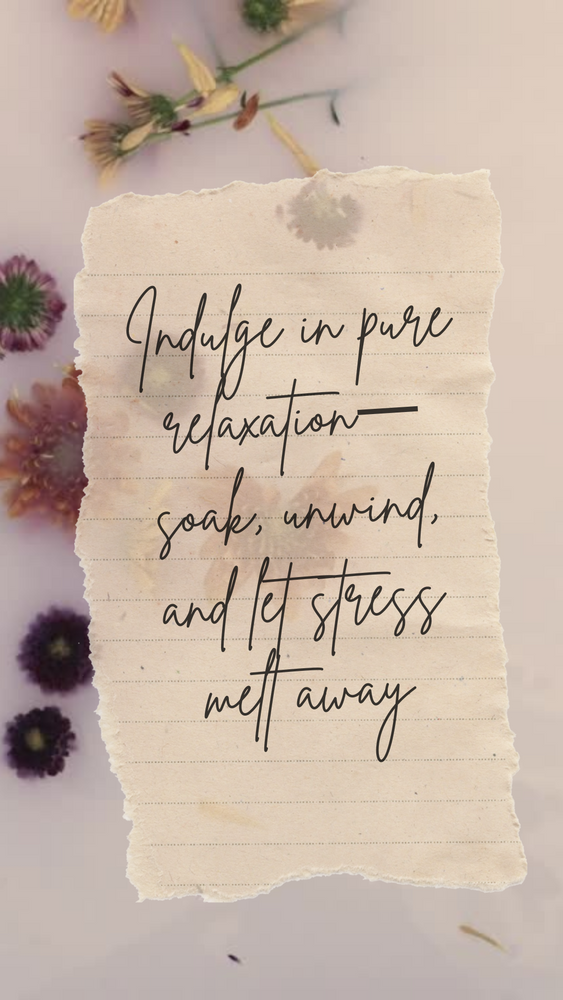 Indulge in pure
relaxation—
soak, unwind,
and let stress
melt away